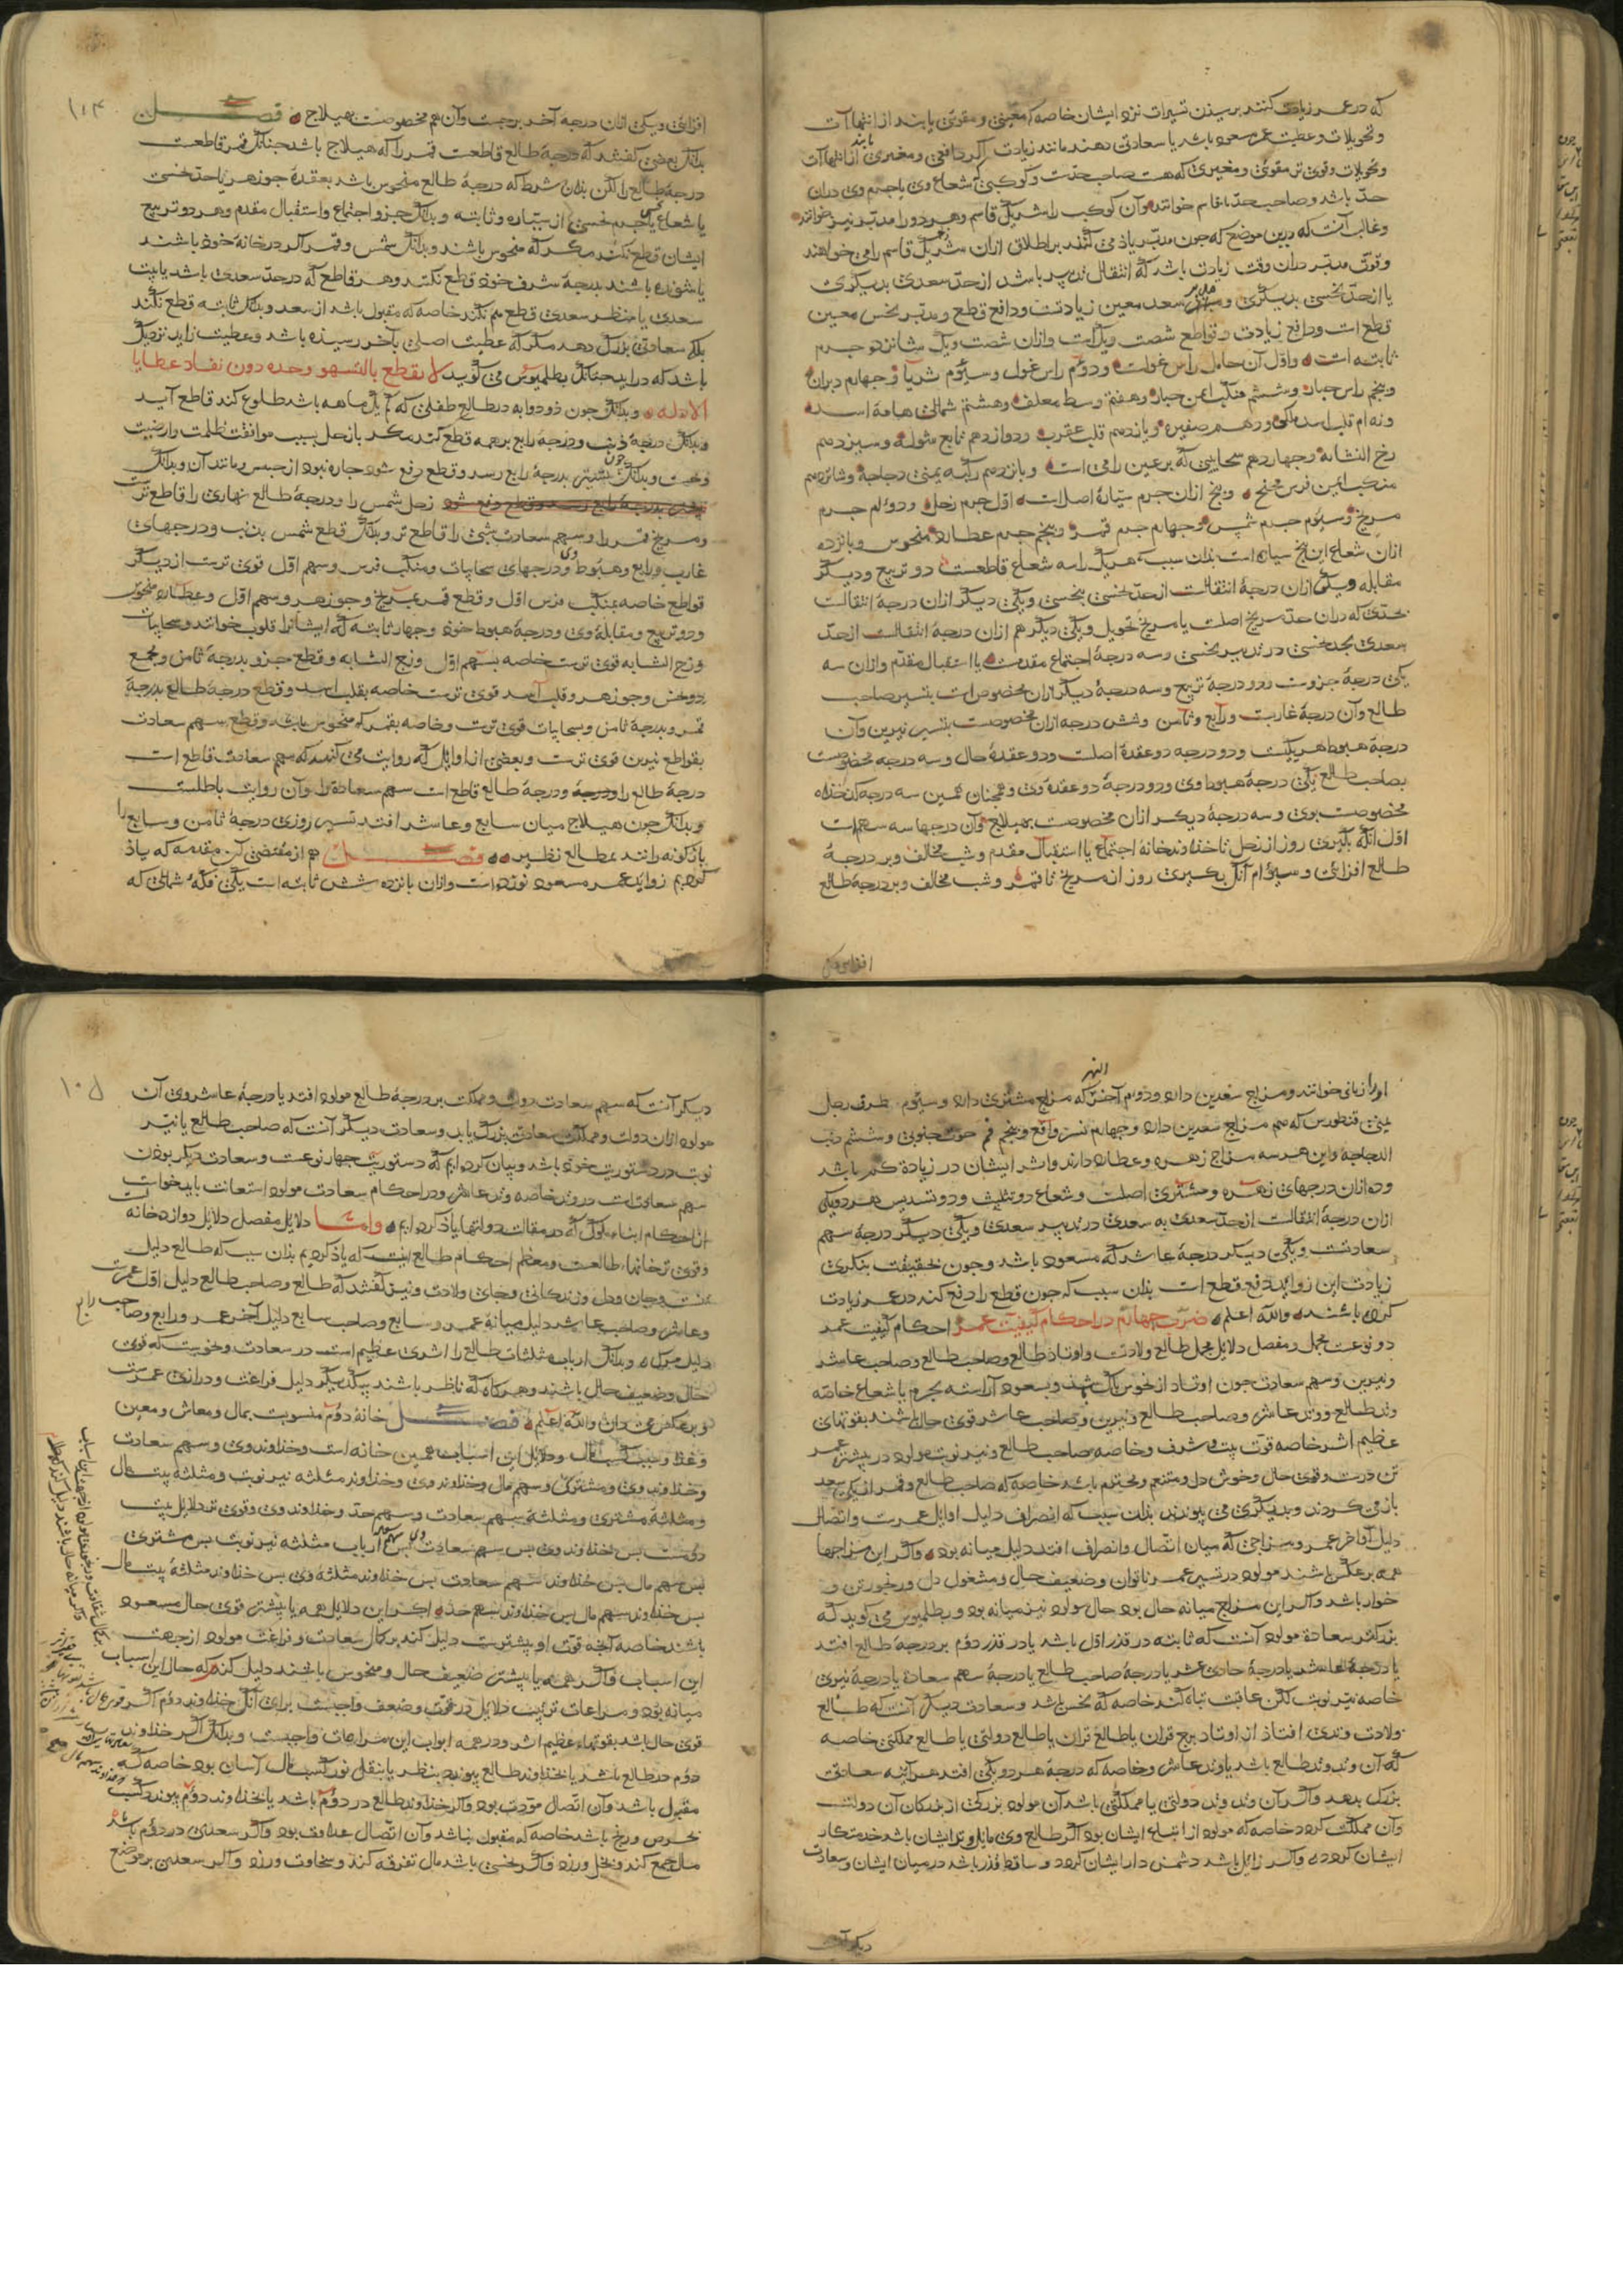 که در عمر زیادت کنند برسیدن تسییرات نزد ایشان خاصه که معینی و مقوی یابند از انتهاآت
و تحویلات و عطیت عمر مسعود باشد یا سعادتی دهند مانند زیادت اگر دافعی و مغیری یابند از انتهاآت
و تحویلات و قوی تر مقوی و مغیری که هست صاحب حدست و کوکبی که شعاع وی یا جرم وی دران
حد باشد و صاحب حد را قاسم خوانند و آن کوکب را شریک قاسم و هر دو را مدبر نیز خوانند
و غالب آنست که درین موضع که چون مدبر یاذ می کنند بر اطلاق ازان شریک قاسم را می خواهند
و قوت مدبر دران وقت زیادت باشد که انتقال تدبیر باشد از حد سعدی بدیگری
یا از حد نحسی بدیگری و مدبر سعد معین زیادتست و دافع قطع و مدبر نحس معین
قطع است و دافع زیادت و قواطع شصت و یک است وازان شصت و یک شانزده جرم
ثابته است و اول آن حامل راس غولست و دوم راس غول و سیوم ثریا و چهارم دبران
و پنجم راس جبار و ششم منکب ایمن جبار و هفتم وسط معلف و هشتم شمالی هامة اسد
و نهم قلب اسد ملکی و دهم صفیره و یازدهم قلب عقرب و دوازدهم تابع شوله و سیزدهم
زج النشابه و چهاردهم سحابیی که بر عین رامی است و پانزدهم رکبه یمنی دجاجه و شانزدهم
منکب ایمن فرس مجنح و پنج ازان جرم سیاره اصلست اول جرم زحل و دوم جرم
مریخ و سیوم جرم شمس و چهارم جرم قمر و پنجم جرم عطارد منحوس و پانزده
ازان شعاع این پنج سیاره است بذان سبب که هر یک را سه شعاع قاطعست دو تربیع و دیگر
مقابله و یکی ازان درجهٔ انتقالست از حد نحسی بنحسی و یکی دیگر ازان درجهٔ انتقالست
بحدی که دران حد مریخ اصلست یا مریخ تحویل و یکی دیگر هم ازان درجهٔ انتقالست از حد
سعدی بحد نحسی در تدبیر نحسی و سه درجهٔ اجتماع مقدمست یا استقبال مقدم وازان سه
یکی درجهٔ جزوست و دو درجهٔ تربیع و سه درجهٔ دیگر ازان مخصوص است بتسییر صاحب
طالع وآن درجهٔ غاربست و رابع و ثامن و شش درجه ازان مخصوصست بتسییر نیرین وآن
درجهٔ هبوط هر یکیست و دو درجه دو عقدهٔ اصلست و دو عقدهٔ حال و سه درجه مخصوصست
بصاحب طالع یکی درجهٔ هبوط وی و دو درجهٔ دو عقدهٔ وی و همچنان همین سه درجه کذخداه
مخصوصست بوی و سه درجهٔ دیگر ازان مخصوصست بهیلاج وآن درجها سه سهم است
اول آنک بگیری روز از زحل تا خداوند خانهٔ اجتماع یا استقبال مقدم و شب مخالف و بر درجهٔ
طالع افزائی و سیوم آنک بگیری روز از مریخ تا قمر و شب مخالف و بر درجهٔ طالع
افزائی و یکی
۱۰۴
افزائی و یکی ازان درجه آخر برجست وآن هم مخصوصست بهیلاج فصل
بدانک بعضی گفتند که درجهٔ طالع قاطعست قمر را که هیلاج باشد چنانک قمر قاطعست
درجهٔ طالع را لکن بذان شرط که درجهٔ طالع منحوس باشد بعقدهٔ جوزهر یا حد نحسی
یا شعاع یا جرم نحسی از سیاره و ثابته و بدانک جزو اجتماع و استقبال مقدم و هر دو تربیع
ایشان قطع نکنند مگر که منحوس باشند و بدانک شمس و قمر اگر در خانهٔ خود باشند
یا شرف باشند بدرجهٔ شرف خود قطع نکنند و هر قاطع که در حد سعدی باشد یا بیت
سعدی یا منظر سعدی قطع هم نکند خاصه که مقبول باشد از سعد و بدانک ثابته قطع نکند
بلک سعادتی بزرگ دهد مگر که عطیت اصلی بآخر رسیده باشد و عطیت زاید نزدیک
باشد که در اید چنانک بطلمیوس می گوید لا تقطع بالسهو وحده دون نفاد عطایا
الادله و بدانک چون ذو ذوابه در طالع طفلی که یک ماهه باشد طلوع کند قاطع آید
و بدانک درجهٔ ذنب و درجهٔ رابع بر همه قطع کند مگر بازحل بسبب موافقت ظلمت وارضیت
و نحست و بدانک چون مشتری بدرجهٔ رابع رسد و قطع دفع شود چاره نبود از حبس و مانند آن و بدانک
زحل شمس را و درجهٔ طالع نهاری را قاطع ترست
و مریخ قمر را و سهم سعادت شبی را قاطع تر و بدانک قطع شمس بذنب و درجهای
غارب و رابع و هبوط وی و درجهای سحابیات و منکب فرس و سهم اول قوی ترست از دیگر
قواطع خاصه بمنکب فرس اول و قطع قمر بمریخ و جوزهر و سهم اول و عطارد منحوس
و دو تربیع و مقابلهٔ وی و درجهٔ هبوط خود و چهار ثابته که ایشانرا قلوب خوانند و سحابیات
و زج النشابه قوی ترست خاصه بسهم اول و زج النشابه و قطع جزو بدرجهٔ ثامن و بجمع
دو نحس و جوزهر و قلب اسد قوی ترست خاصه بقلب اسد و قطع درجهٔ طالع بدرجهٔ
قمر و بدرجهٔ ثامن و سحابیات قوی ترست و خاصه بقمر که منحوس باشد و قطع سهم سعادت
بقواطع نیرین قوی ترست و بعضی از اوایل که روایت می کنند که سهم سعادت قاطع است
درجهٔ طالع را و درجهٔ طالع قاطع است سهم سعادة را وآن روایت باطلست
و بدانک چون هیلاج میان سابع و عاشر افتد تسییر روزی درجهٔ ثامن و سابع را
باژگونه رانند بمطالع نظیر فصل هم از مقتضی این مقدمه که یاذ
کردیم زواید عمر مسعود نوزده است وازان پانزده شش ثابته است یکی فکه شمالی که
او را زبانی خوانند و مزاج سعدین دارد و دوم آخر النهر که مزاج مشتری دارد و سیوم طرف رجل
یمنی قنطورس که هم مزاج سعدین دارد و چهارم نسر واقع و پنجم فم حوت جنوبی و ششم ذنب
الدجاجه واین هر سه مزاج زهره و عطارد دارند واثر ایشان در زیادة کم باشد
و ده ازان درجهای زهره و مشتری اصلست و شعاع دو تثلیث و دو تسدیس هر دو یکی
ازان درجهٔ انتقالست از حد سعدی به سعدی در تدبیر سعدی و یکی دیگر درجهٔ سهم
سعادتست و یکی دیگر درجهٔ عاشر که مسعود باشد و چون بحقیقت بنگری
زیادت این زواید دفع قطع است بذان سبب که چون قطع را دفع کند در عمر زیادت
کرده باشند والله اعلم ضرب چهارم در احکام کیفیت عمر احکام کیفیت عمر
دو نوعست مجمل و مفصل دلایل مجمل طالع ولادتست واوتاد طالع و صاحب طالع و صاحب عاشر
و نیرین و سهم سعادت چون اوتاد از نحوس پاک شد و بسعود آراسته بجرم یا شعاع خاصه
وتد طالع و وتد عاشر و صاحب طالع و نیرین و صاحب عاشر قوی حال باشند بقوتهای
عظیم اثر خاصه قوت بیت و شرف و خاصه صاحب طالع و نیر نوبت مولود در بیشتر عمر
تن درست و قوی حال و خوش دل و متنعم و محترم باشد خاصه که صاحب طالع و قمر از یکی سعد
باز می گردند و بدیگری می پیوندند بذان سبب که انصراف دلیل اوایل عمرست و اتصال
دلیل اواخر عمر و مزاجی که میان اتصال و انصراف افتد دلیل میانه بود و اگر این مزاجها
همه بر عکس باشند مولود در بیشتر عمر ناتوان و ضعیف حال و مشغول دل و رنجور تن و
خوار باشد و اگر این مزاج میانه حال بود حال مولود نیز میانه بود و بطلمیوس می گوید که
بزرگتر سعادة مولود آنست که ثابته در قدر اول باشد یا در قدر دوم بر درجهٔ طالع افتد
یا درجهٔ عاشر یا درجهٔ حادی عشر یا درجهٔ صاحب طالع یا درجهٔ سهم سعادة یا درجهٔ نیری
خاصه نیر نوبت لکن عاقبت تباه کند خاصه که نحس باشد و سعادت دیگر آنست که طالع
ولادت وتدی افتاذ از اوتاد برج قران یا طالع قران یا طالع دولتی یا طالع مملکتی خاصه
که آن وتد وتد طالع باشد یا وتد عاشر و خاصه که درجهٔ هر دو یکی افتد هر آینه سعادتی
بزرگ بدهد و اگر آن وتد وتد دولتی یا مملکتی باشد آن مولود بزرگی از بزرگان آن دولت
وآن مملکت گردد خاصه که مولود از اتباع ایشان بود اگر طالع وی مایل وتد ایشان باشد خدمتکار
ایشان گردد و اگر زایل باشد دشمن دار ایشان گردد و ساقط قدر باشد در میان ایشان و سعادت
دیگر آنست
۱۰۵
دیگر آنست که سهم سعادت دولت و مملکت بر درجهٔ طالع مولود افتد یا درجهٔ عاشر وی آن
مولود ازان دولت و مملکت سعادت بزرگ یابد و سعادت دیگر آنست که صاحب طالع یا نیر
نوبت در دستوریت خود باشد و بیان کرده ایم که دستوریت چهار نوعست و سعادت دیگر بودن
سهم سعادتست در وتد خاصه وتد عاشر و در احکام سعادت مولود استعانت باید خواست
از احکام ابناء ملوک که در مقالت دو انتها یاذ کرده ایم واما دلایل مفصل دلایل دوازده خانه
و قوی تر خانها طالعست و معظم احکام طالع اینست که یاذ کردیم بذان سبب که طالع دلیل
تنست و جان و دل و زندگانی و جای ولادت و نیز گفتند که طالع و صاحب طالع دلیل اول عمرست
و عاشر و صاحب عاشر دلیل میانهٔ عمر و سابع و صاحب سابع دلیل آخر عمر و رابع و صاحب رابع
دلیل مرگ و بدانک ارباب مثلثات طالع را اثری عظیم است در سعادت و نحوست که قوی
حال و ضعیف حال باشند و هرگاه که ناظر باشند بیکدیگر دلیل فراغت و درازی عمرست
و بر عکس همی دان والله اعلم فصل خانهٔ دوم منسوبست بمال و معاش و معین
و غذا و سبب کسب مال و دلایل این اسباب همین خانه است و خداوند وی و سهم سعادت
و خداوند وی و مشتری و سهم مال و خداوند وی و خداوند مثلثه نیر نوبت و مثلثه بیت مال
و مثلثهٔ مشتری و مثلثهٔ سهم سعادت و سهم حد و خداوند وی و قوی تر دلایل بیت
دومست پس خداوند وی پس سهم سعادت پس ارباب مثلثه نیر نوبت پس مشتری
پس سهم مال پس خداوند سهم سعادت پس خداوند مثلثهٔ وی پس خداوند مثلثهٔ بیت مال
پس خداوند سهم مال پس خداوند سهم حد اگر این دلایل همه یا بیشتر قوی حال مسعود
باشند خاصه آنچه قوت او بیشترست دلیل کند بر کمال سعادت و فراغت مولود از جهت
این اسباب و اگر همه یا بیشتر ضعیف حال و منحوس باشند دلیل کند که حال این اسباب
میانه بود و مراعات ترتیب دلایل در قوت و ضعف واجبست برای آنک خداوند دوم اگر قوی حال
قوی حال باشد بقوتهاء عظیم اثر و در همه ابواب این مراعات واجبست و بدانک اگر خداوند
دوم در طالع باشد یا بخداوند طالع پیوندد بنظر یا بنقل نور کسب مال آسان بود خاصه که
مقبول باشد وآن اتصال مودت بود و اگر خداوند طالع در دوم باشد یا بخداوند دوم پیوندد کسب
بحرص و رنج باشد خاصه که مقبول نباشد وآن اتصال عداوت بود و اگر سعدی در دوم باشد
مال جمع کند و بخل ورزد و اگر نحسی باشد مال تفرقه کند و سخاوت ورزد و اگر سعدین بر موضع